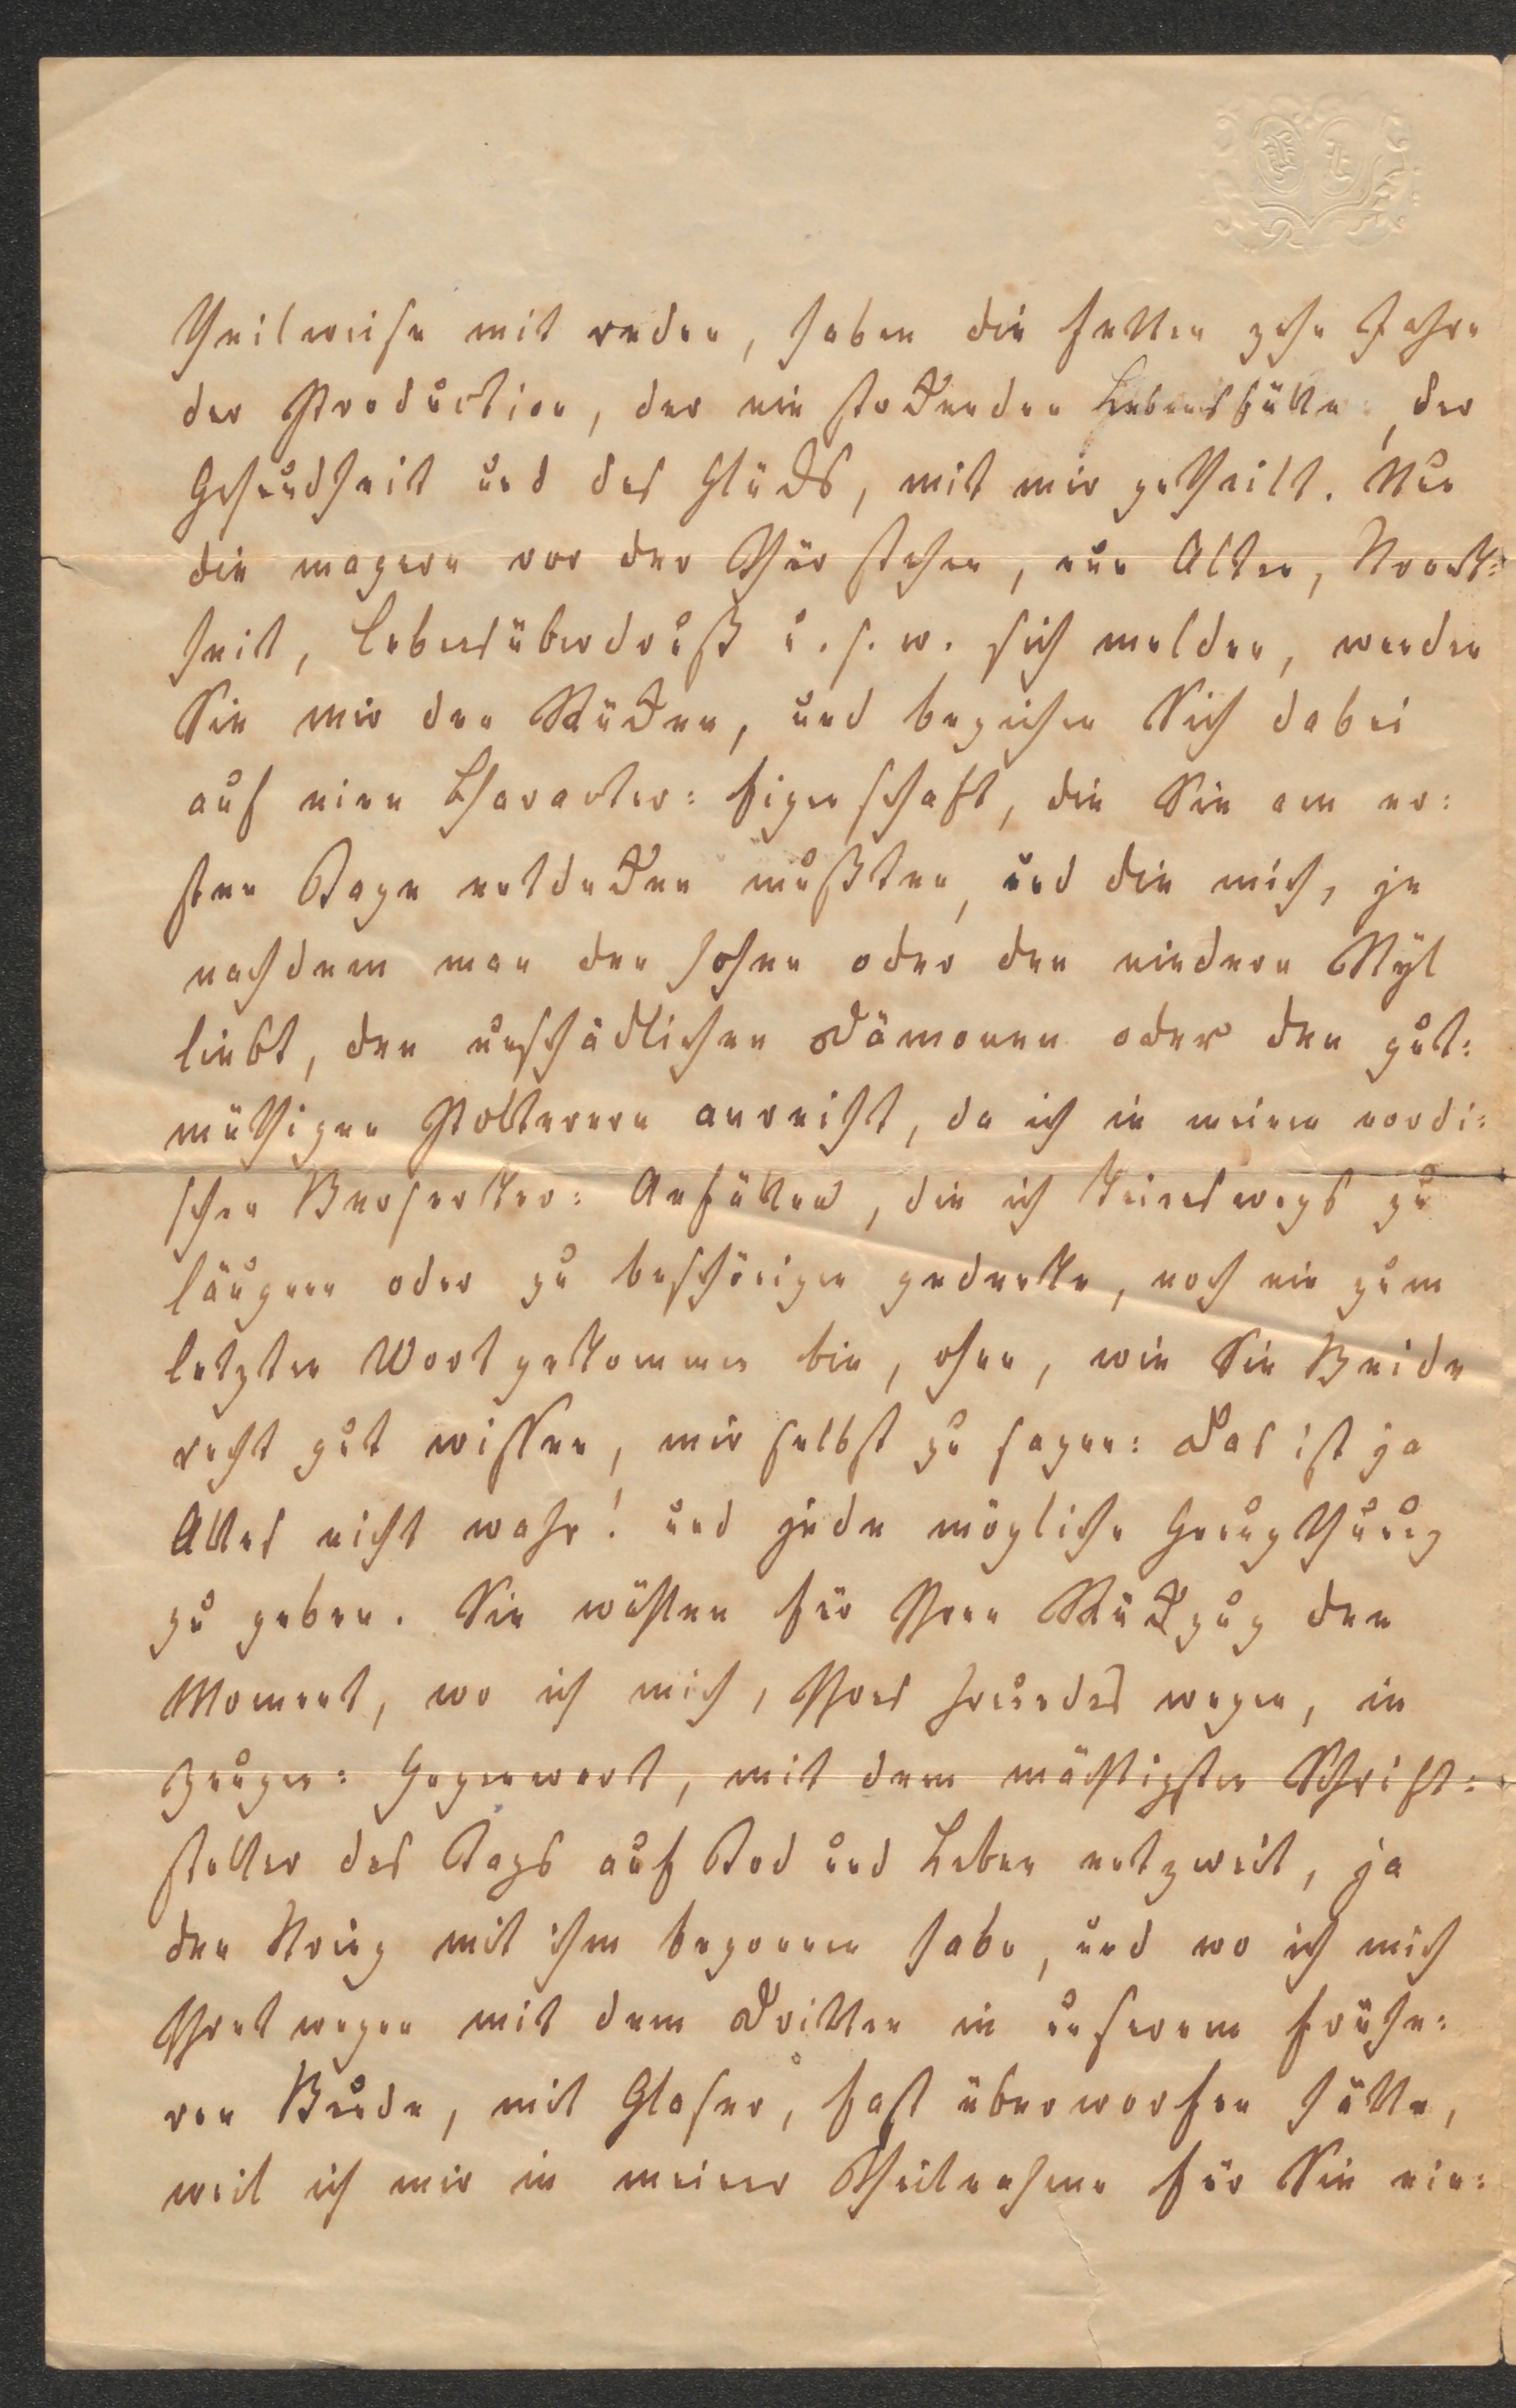 theilweise mit reden, haben die fetten zehn Jahre
der Production, der nie stockenden Lebensfülle, der
Gesundheit und des Glücks, mit mir getheilt. Nun
die magern vor der Thür stehen, nun Alter, Krank=
heit, Lebensüberdruß u. s. w. sich melden, wenden
Sie mir den Rücken, und beziehen Sich dabei
auf eine Character=Eigenschaft, die Sie am er=
sten Tage entdecken mußten, und die mich, je
nachdem man den hohen oder den niedern Styl
liebt, den unschädlichen Dämonen oder den gut=
müthigen Polterern anreiht, da ich in meinen nordi=
schen Berserker=Anfällen, die ich keineswegs zu
läugnen oder zu beschönigen gedenke, noch nie zum
letzten Wort gekommen bin, ohne, wie Sie Beide
recht gut wissen, mir selbst zu sagen: Das ist ja
Alles nicht wahr! und jede mögliche Genugthuung
zu geben. Sie wählen für Ihren Rückzug den
Moment, wo ich mich, Ihres Freundes wegen, in
Zeugen=Gegenwart, mit dem mächtigsten Schrift=
steller des Tags auf Tod und Leben entzweit, ja
den Krieg mit ihm begonnen habe, und wo ich mich
Ihretwegen mit dem Dritten in unserem frühe=
ren Bunde, mit Glaser, fast überworfen hätte,
weil ich mir in meiner Theilnahme für Sie ein=